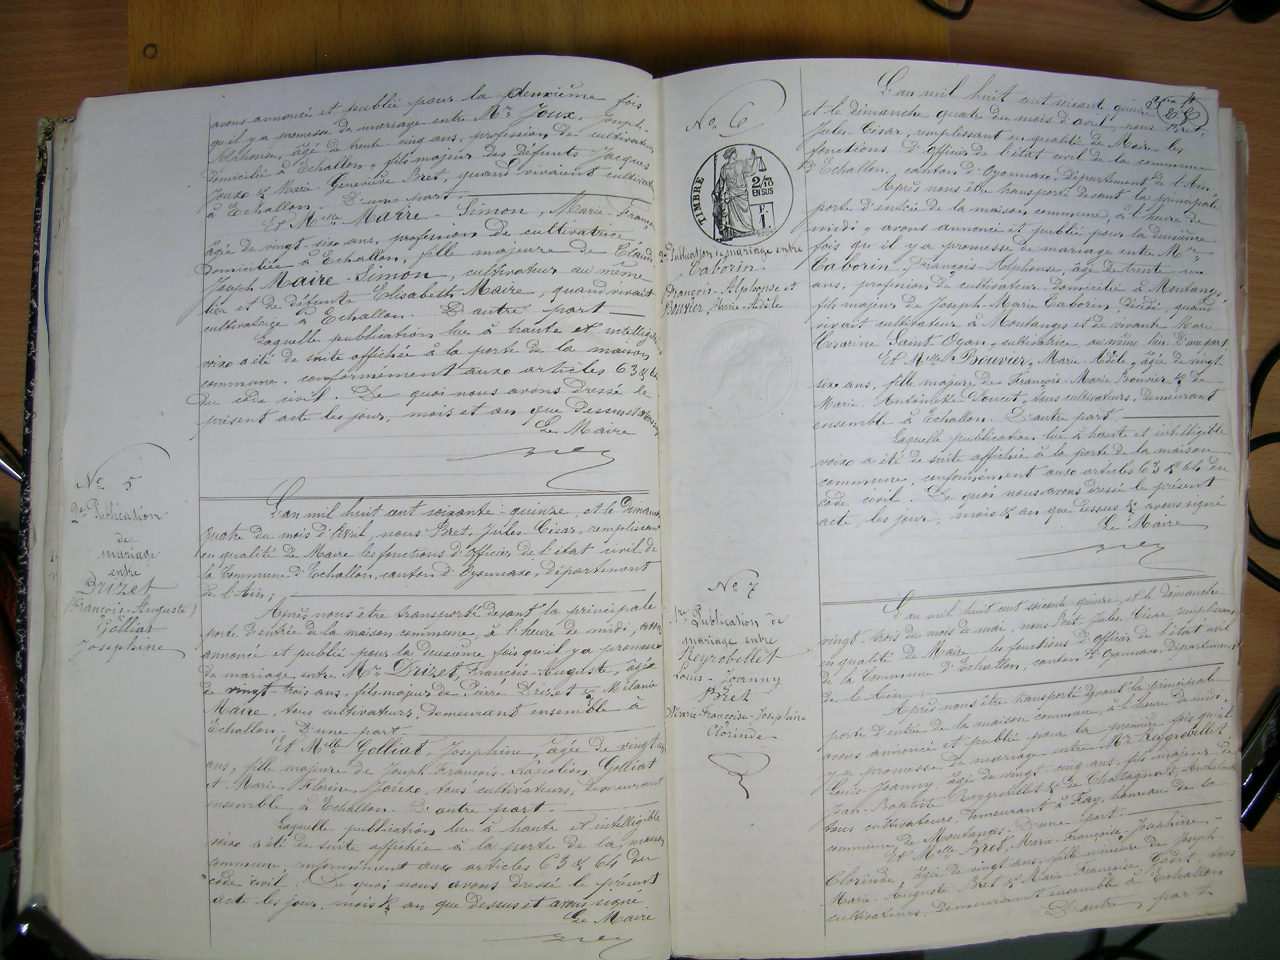 avons annoncé et publié pour la deuxième fois
qu'il y a promesse de mariage entre Mr Joux, Joseph-
Alphonse, âgé de trente cinq ans, profession de cultivateur
domicilié à Echallon, fils majeur des défunts Jacques
Joux & Marie Geneviève Bret, quand vivaient cultivateurs
à Echallon. D'une part.
Et Mlle Marre-Simon, Marie-
âgée de vingt six ans, profession de cultivatrice
domiciliée à Echallon, fille majeure de Claude
Joseph Maire-Simon, cultivateur au même
lieu et de défunte Elisabeth Maire, quand vivait
cultivatrice à Echallon. D'autre part.
Laquelle publication lue à haute et intelligible
voix a été de suite affichée à la porte de la maison
commune, conformément aux articles 63 & 64
du code civil. De quoi nous avons dressé le
présent acte les jour, mois et an que dessus
Le Maire
No 5
2e Publication
de
mariage
entre
Drizet
(François-Auguste)
Golliat
Josephine
L'an mil huit cent soixante-quinze, et le Dimanche
quatre du mois d'Avril, nous Bret, Jules César, remplissant
en qualité de Maire les fonctions d'Officier de l'état civil de
la Commune d'Echallon, canton d'Oyonnax, département
de l'Ain;
Après nous être transporté devant la principale
porte d'entrée de la maison commune, à l'heure de midi, avons
annoncé et publié pour la deuxième fois qu'il y a promesse
de mariage entre Mr Drizet, François-Auguste, âgé
de vingt trois ans, fils majeur de Pierre Drizet & Mélanie
Maire, tous cultivateurs, demeurant ensemble à
Echallon. D'une part.
Et Mlle Golliat, Josephine, âgée de vingt
ans, fille majeure de Joseph François Napoléon Golliat
et Marie Florine Joux, tous cultivateurs, demeurant
ensemble à Echallon. D'autre part.
Laquelle publication, lue à haute et intelligible
voix a été de suite affichée à la porte de la maison
commune, conformément aux articles 63 & 64 du
code civil. De quoi nous avons dressé le présent
acte les jour, mois & an que dessus et avons signé.
Le Maire
No 6
TIMBRE
2/10
EN SUS
2e Publication de mariage entre
Taborin
François-Alphonse et
Bouvier, Marie Adèle
L'an mil huit cent soixante quinze
et le dimanche quatre du mois d'avril, nous Bret,
Jules César, remplissant en qualité de Maire les
fonctions d'Officier de l'état civil de la commune
d'Echallon, canton d'Oyonnax, Département de l'Ain.
Après nous être transporté devant la principale
porte d'entrée de la maison commune, à l'heure de
midi, avons annoncé et publié pour la deuxième
fois qu'il y a promesse de mariage entre Mr
Taborin, François-Alphonse, âgé de trente un
ans, profession de cultivateur domicilié à Montanges,
fils majeur de Joseph Marie Taborin, décédé quand
vivait cultivateur à Montanges et de vivante Marie
Césarine Saint Oyan, cultivatrice au même lieu. D'une part
Et Mlle Bouvier, Marie Adèle, âgée de vingt
six ans, fille majeure de François-Marie Bouvier & de
Marie-Antoinette Doucet, tous cultivateurs, demeurant
ensemble à Echallon. D'autre part.
Laquelle publication, lue à haute et intelligible
voix a été de suite affichée à la porte de la maison
commune, conformément aux articles 63 & 64 du
code civil. De quoi nous avons dressé le présent
acte, les jour, mois & an que dessus & avons signé
Le Maire
No 7
1re Publication de
mariage entre
Beyrobellet
Louis-Joanny
Bret
Marie-Françoise-Josephine
Clorinde
L'an mil huit cent soixante quinze, et le dimanche
vingt-trois du mois de mai, nous Bret, Jules César remplissant
en qualité de Maire, les fonctions d'officier de l'état civil
de la Commune d'Echallon, canton d'Oyonnax, Département
de l'Ain,
Après nous être transporté devant la principale
porte d'entrée de la maison commune, à l'heure de midi,
avons annoncé et publié pour la première fois qu'il
y a promesse de mariage entre Mr Beyrobellet
Louis Joanny âgé de vingt-cinq ans, fils majeur de
Jean-Baptiste Beyrobellet & de Chatagnat,
tous cultivateurs, demeurant à Fay, hameau de la
commune de Montanges. D'une part.
Et Mlle Bret, Marie Françoise Josephine-
Clorinde, âgée de vingt ans, fille mineure de Joseph
Marie-Auguste Bret & Marie Françoise tous
cultivateurs, demeurant ensemble à Echallon
D'autre part